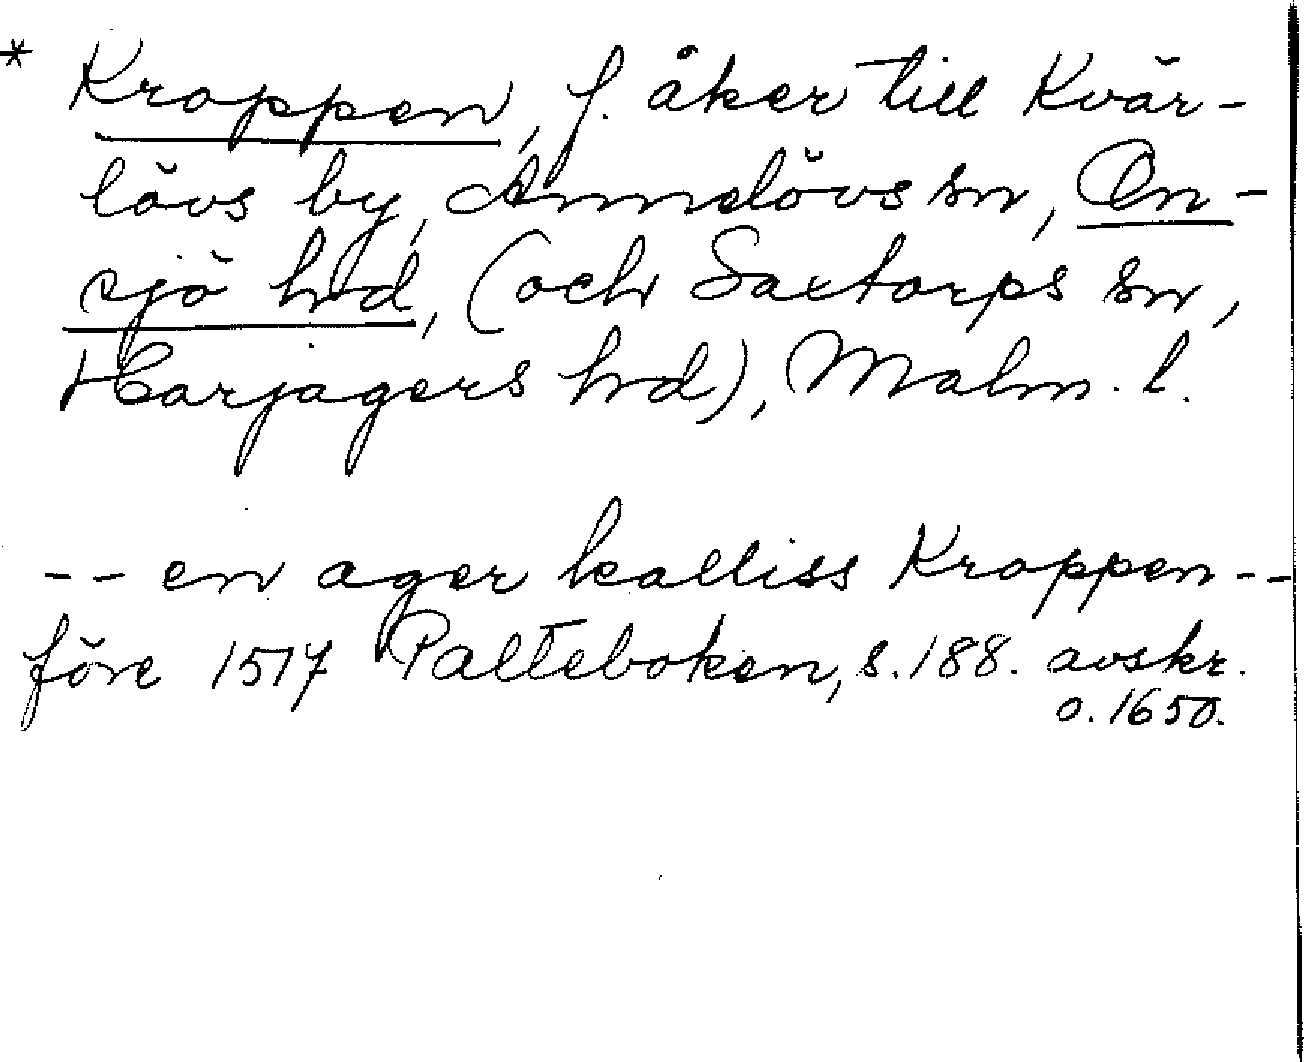 * Kroppen, f. åker till Kvär-
lövs by, Annelövs sn, On-
sjö hd, (och Saxtorps sn,
Harjagers hd), Malm. l.
-- en ager kalliss Kroppen --
före 1517 Palteboken, s. 188. avskr.
o. 1650.